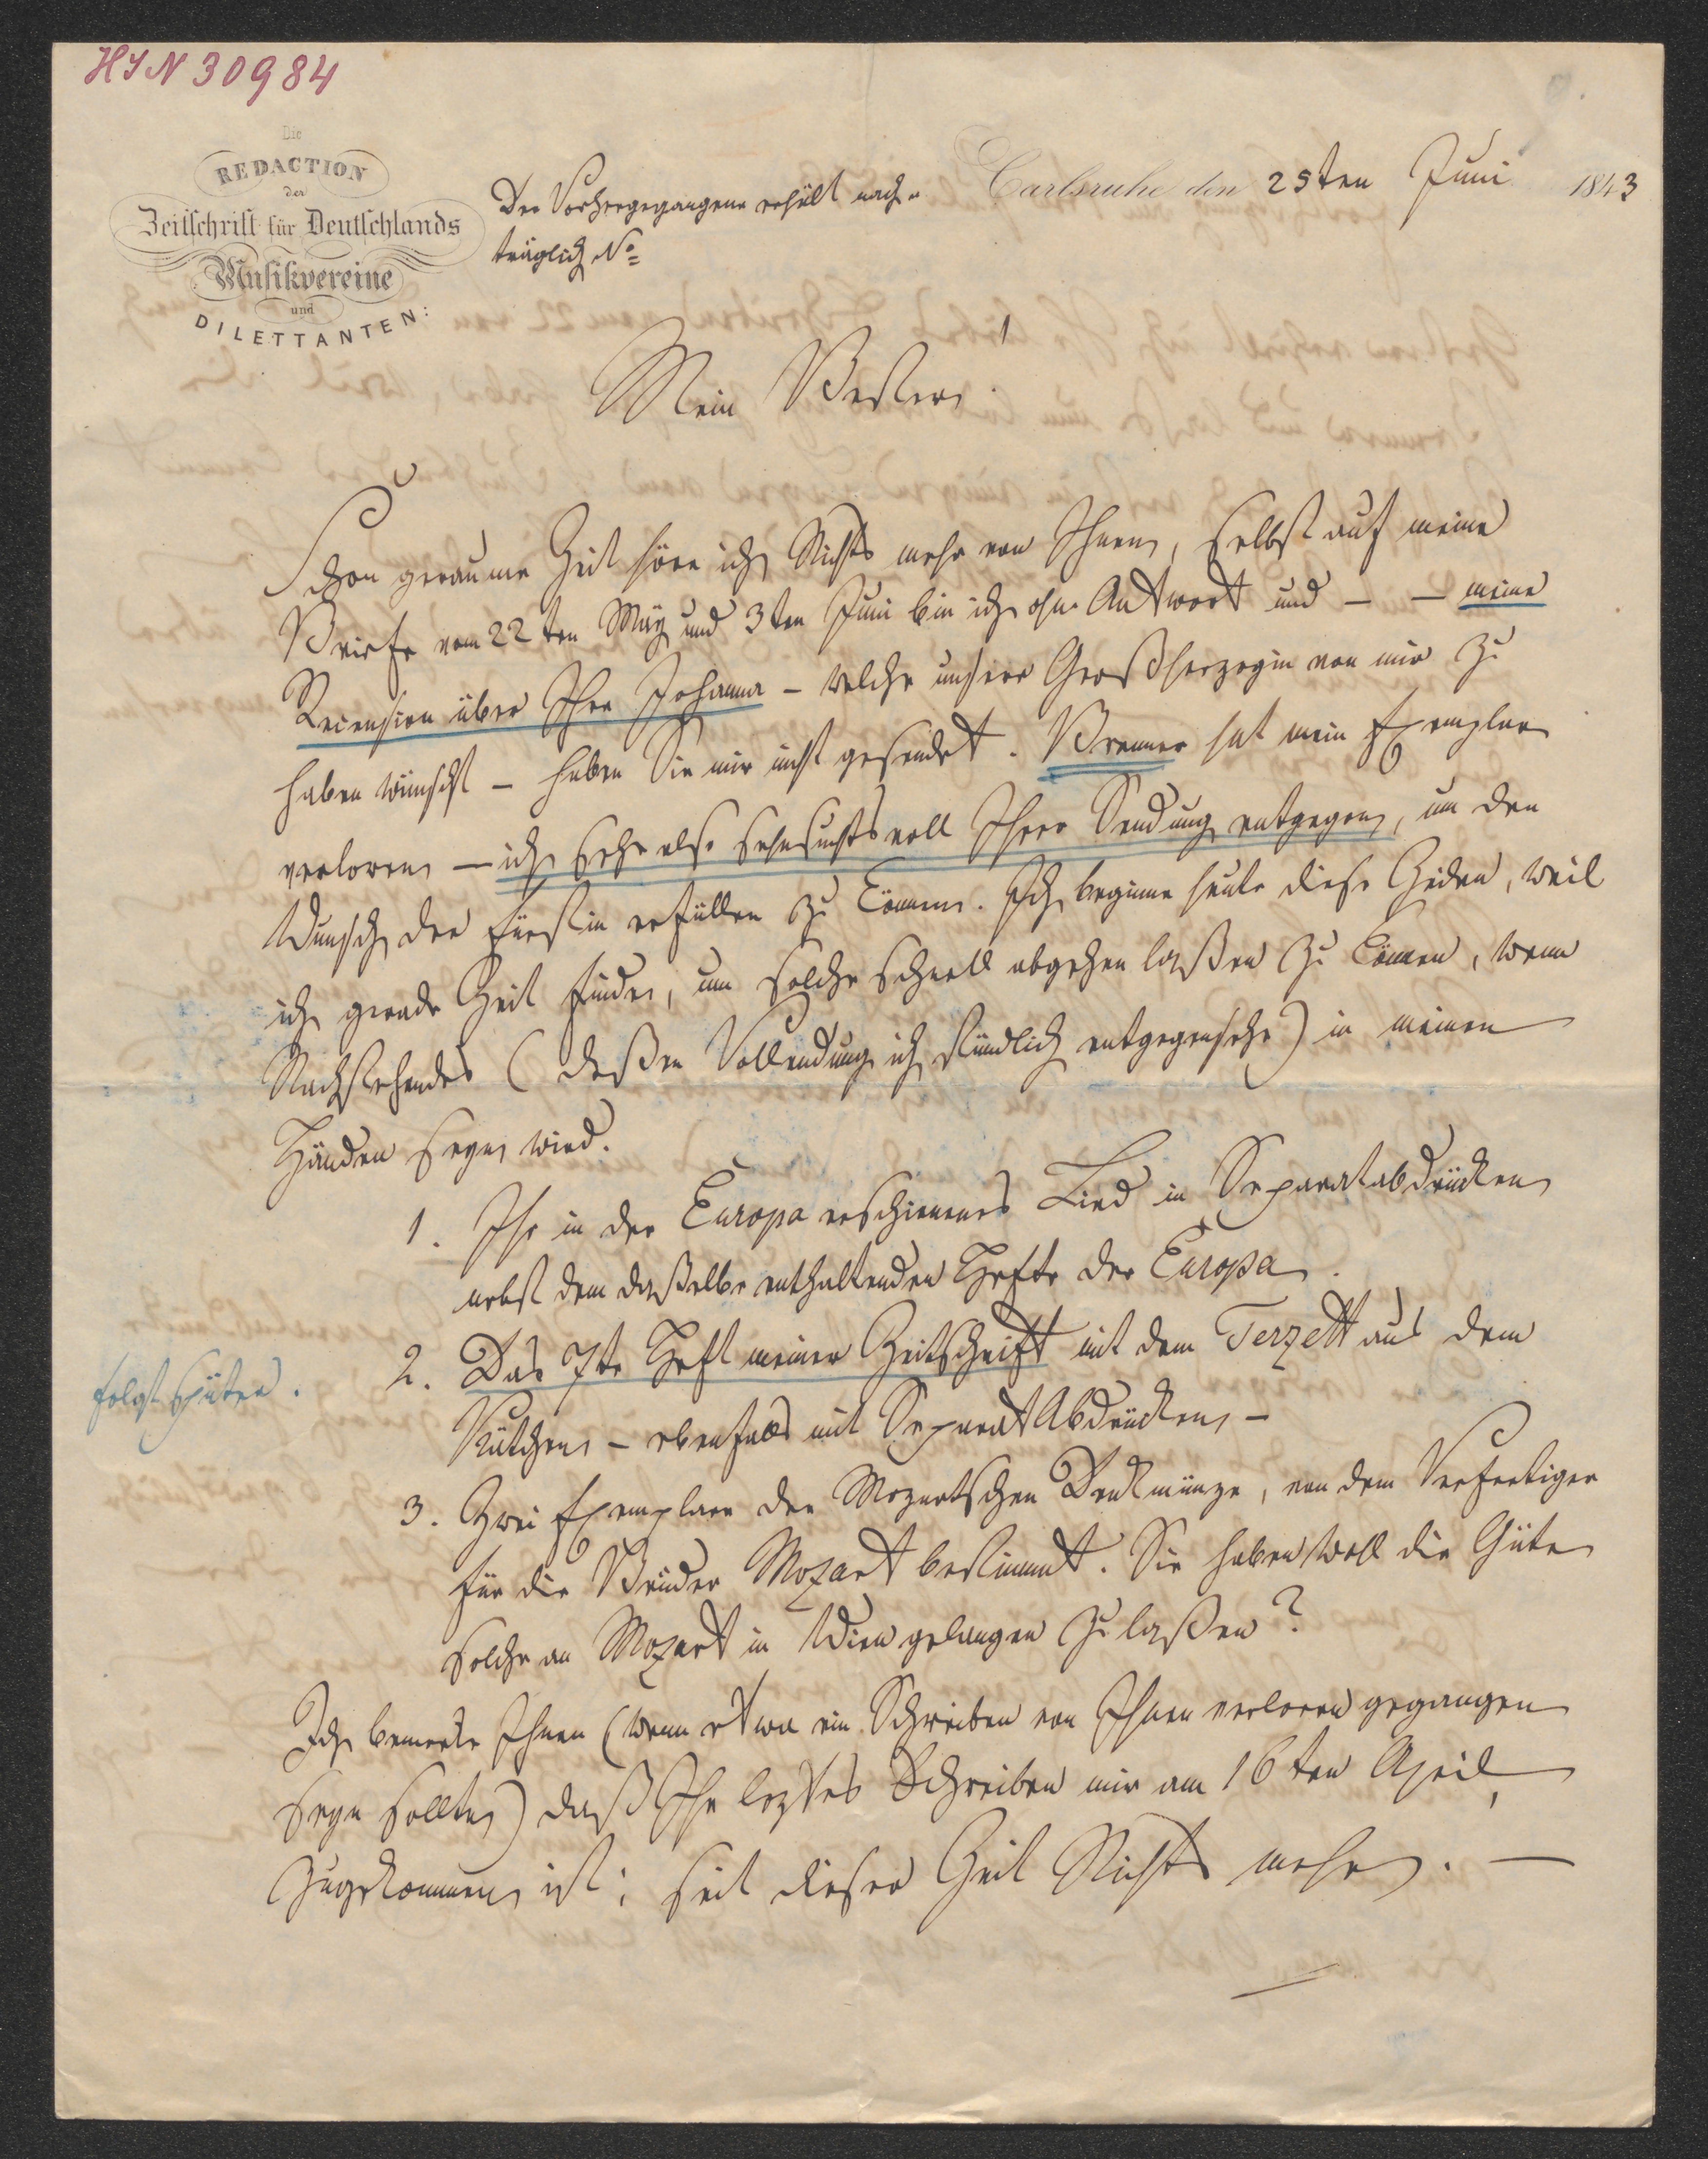 HIN 30984
Die
REDACTION
der
Zeitschrift für Deutschlands
Musikvereine
und
DILETTANTEN:
Carlsruhe den 25ten Juni 1843
Der Vorhergegangene erhält nach-
träglich No
Mein Bester!
Schon geraume Zeit höre ich Nichts mehr von Ihnen, selbst auf meine
Briefe vom 22ten May und 3ten Juni bin ich ohne Antwort und – – meine
Recension über Ihre Johanna – welche unsere Großherzogin von mir zu
haben wünscht – haben Sie mir nicht gesendet. Brenner hat mein Exemplar
verloren – ich sehe also sehnsuchtsvoll Ihrer Sendung entgegen, um den
Wunsch der Fürstin erfüllen zu können. Ich beginne heute diese Zeilen, weil
ich gerade Zeit finde, um solche schnell abgehen laßen zu können, wenn
Nachstehendes (deßen Vollendung ich stündlich entgegensehe) in meinen
Händen seyn wird.
1. Ihr in der Europa erschienenes Lied in Separatabdrücken
nebst dem daßelbe enthaltenden Hefte der Europa.
2. Das 7te Heft meiner Zeitschrift mit dem Terzett aus dem
folgt später.
Käthchen – ebenfalls mit SeparatAbdrücken –
3. Zwei Exemplare der Mozartschen Denkmünze, von dem Verfertiger
für die Brüder Mozart bestimmt. Sie haben woll die Güte
solche an Mozart in Wien gelangen zu laßen?
Ich bemerke Ihnen (wenn etwa ein Schreiben von Ihnen verloren gegangen
seyn sollte) daß Ihr leztes Schreiben mir am 16ten April,
zugekommen ist; seit dieser Zeit Nichts mehr. –